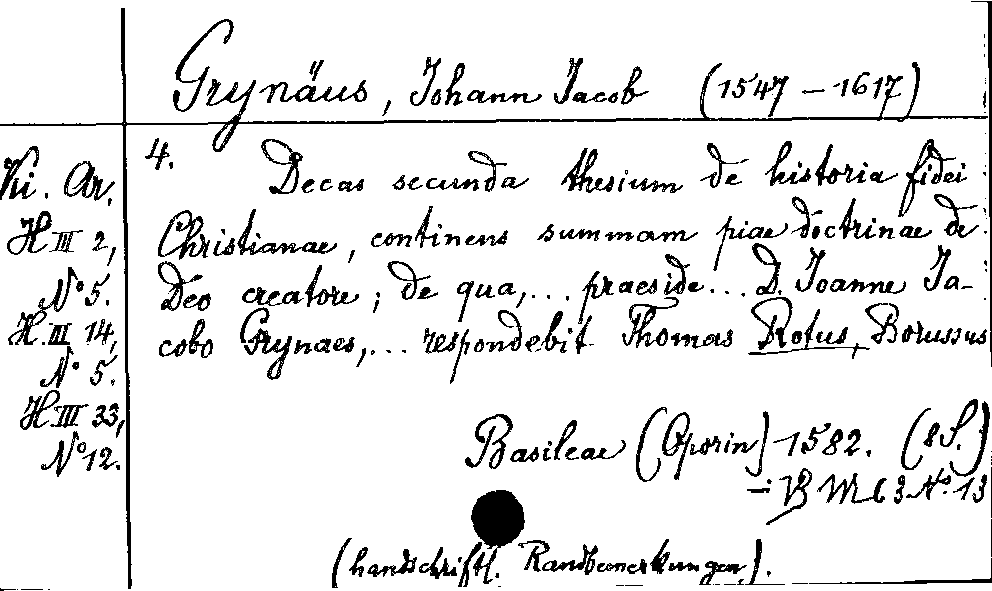 Grynäus, Johann Jacob (1547 – 1617)
4. Decas secunda thesium de historia fidei
Christianae, continens summam piae doctrinae de
Deo creatore; de qua,... praeside... D. Joanne Ja-
cobo Grynaeo,... respondebit Thomas Rotus, Borussus
Basileae (Oporin) 1582. (8 S.)
– B M C 3 No 13
(handschriftl. Randbemerkungen).
Ki. Ar.
H III 2,
No 5.
H. III 14,
No 5.
H III 33,
No 12.